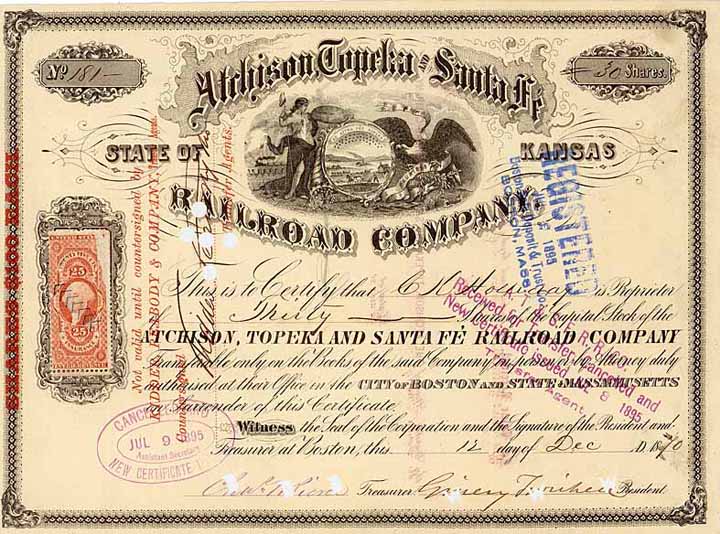 No 181
30 Shares.
Atchison Topeka and Santa Fé
STATE OF KANSAS
RAILROAD COMPANY
This is to Certify that C K Holliday is Proprietor
of Thirty Shares of the Capital Stock of the
ATCHISON, TOPEKA AND SANTA FÉ RAILROAD COMPANY
Transferable only on the Books of the said Company in person or by Attorney duly
authorised at their Office in the CITY OF BOSTON AND STATE OF MASSACHUSETTS
on Surrender of this Certificate.
Witness the Seal of the Corporation and the Signature of the Resident and
Treasurer at Boston, this 12 day of Dec A.D. 1870
Treasurer
President
Not valid until countersigned by
KIDDER, PEABODY & COMPANY
Transfer Agents.
Countersigned
25
25
CANCELLED
JUL 9 1895
Assistant Secretary
NEW CERTIFICATE
REGISTERED
1895
Boston Safe Deposit & Trust Co.
BOSTON, MASS.
A. T. & S. F. R. R. Co.
Received for Transfer, Cancelled and
New Certificate issued
8 1895
Transfer Agent